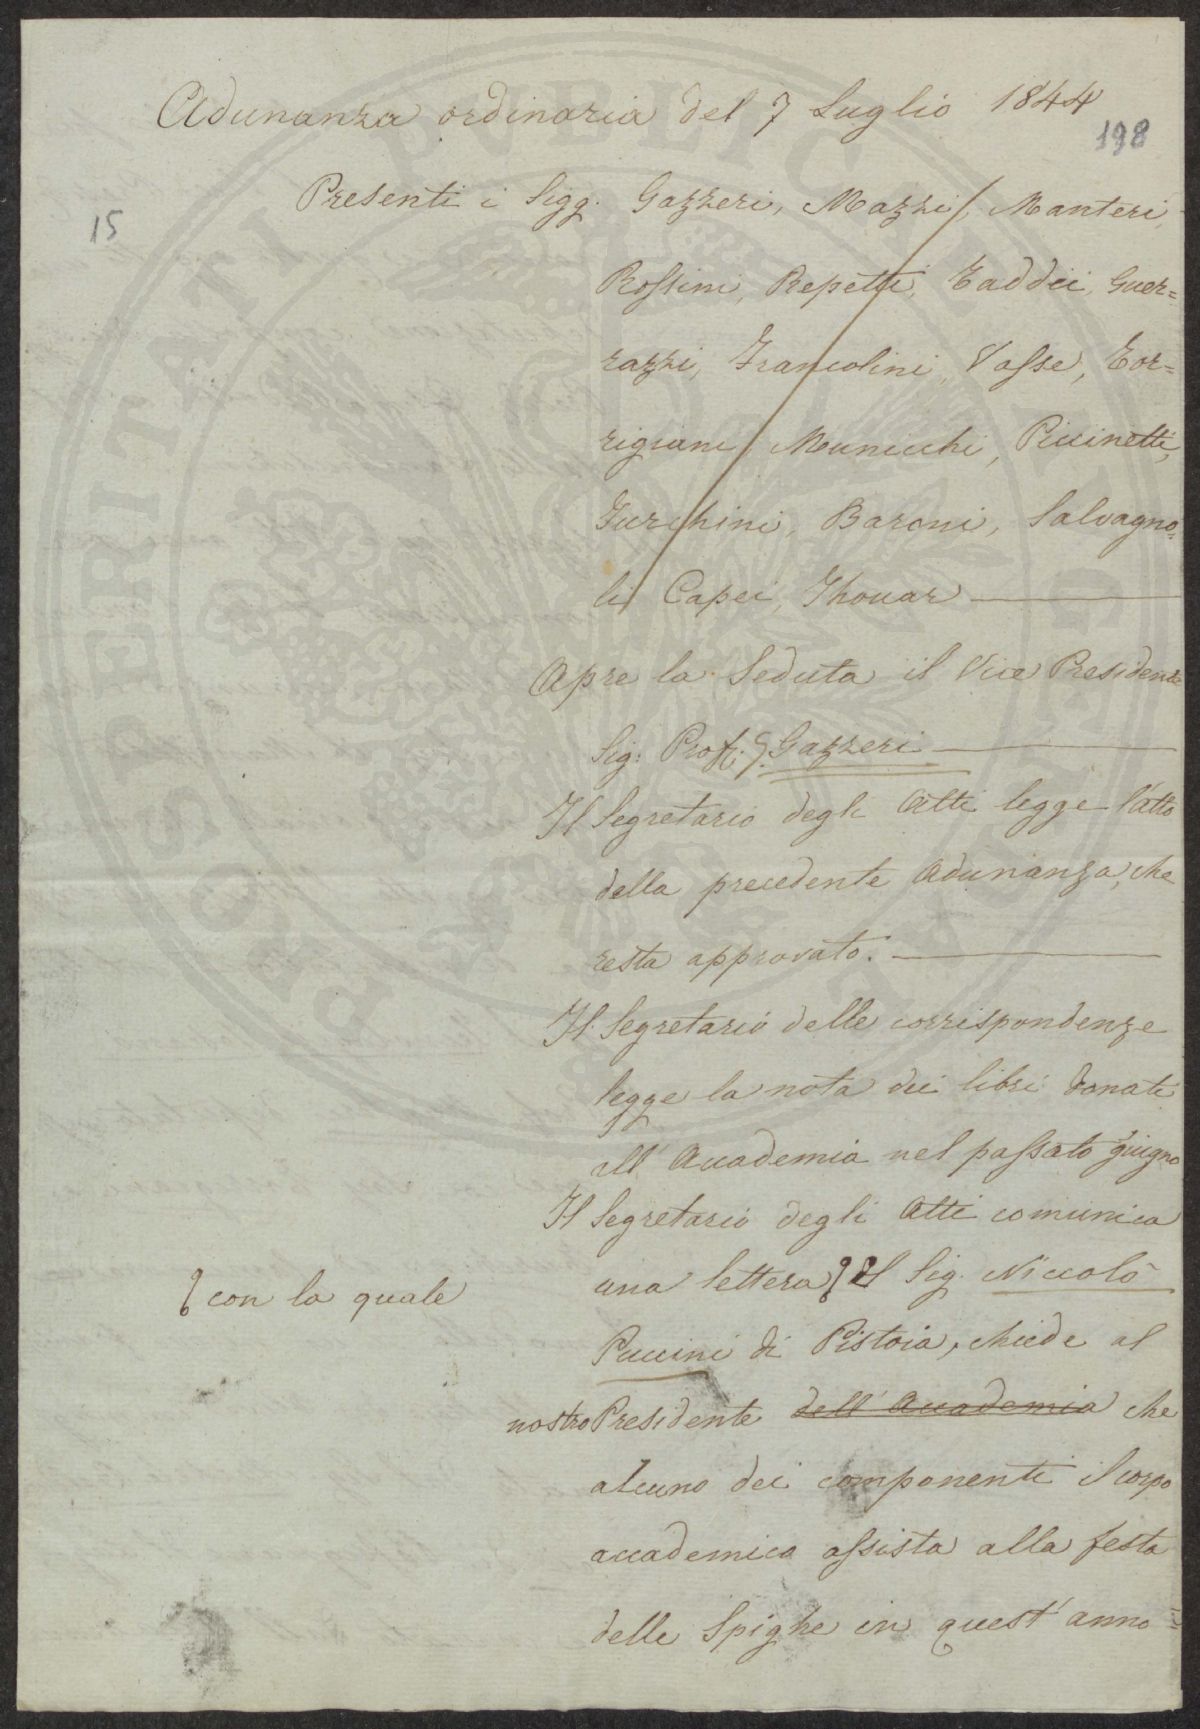 Adunanza ordinaria del 7 Luglio 1844
198
15
Presenti i Sigg. Gazzeri, Mazzi, Manteri,
Rossini, Repetti, Taddei, Guer=
razzi, Francolini, Vasse, Tor=
rigiani, Municchi, Piccinetti,
Turchini, Baroni, Salvagno=
li Capei, Thouar
Apre la Seduta il Vice Presidente
Sig: Prof: G. Gazzeri
Il Segretario degli Atti legge l'atto
della precedente Adunanza, che
resta approvato.
Il Segretario delle corrispondenze
legge la nota dei libri donati
all'Accademia nel passato giugno
Il Segretario degli Atti comunica
una lettera il Sig. Niccolò
con la quale
Puccini di Pistoia, chiede al
nostro Presidente dell'Accademia che
alcuno dei componenti il corpo
accademico assista alla festa
delle Spighe in quest'anno
PROSPERITATI PUBLICAE AUGENDAE